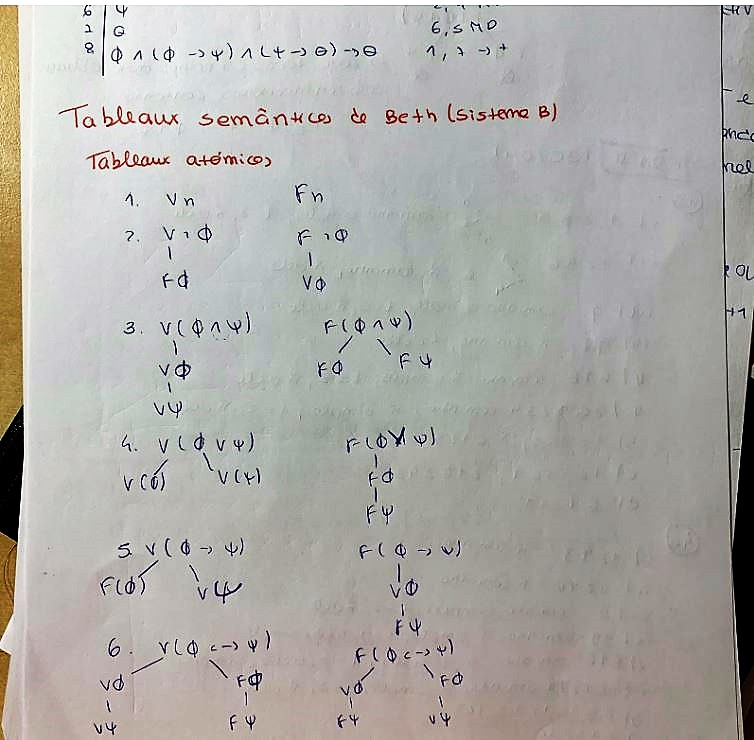 6 ψ
7 θ 6,5 MP
8 ϕ ∧ (ϕ → ψ) ∧ (ψ → θ) → θ 1, 7 → +
Tableaux semânticos de Beth (Sistema B)
Tableaux atómicos
1. V n F n
2. V ¬ ϕ F ¬ ϕ
F ϕ V ϕ
3. V ( ϕ ∧ ψ ) F ( ϕ ∧ ψ )
V ϕ F ϕ F ψ
V ψ
4. V ( ϕ ∨ ψ ) F ( ϕ ∨ ψ )
V (ϕ) V (ψ) F ϕ
F ψ
5. V ( ϕ → ψ ) F ( ϕ → ψ )
F (ϕ) V ψ V ϕ
F ψ
6. V ( ϕ <-> ψ ) F ( ϕ <-> ψ )
V ϕ F ϕ V ϕ F ϕ
V ψ F ψ F ψ V ψ